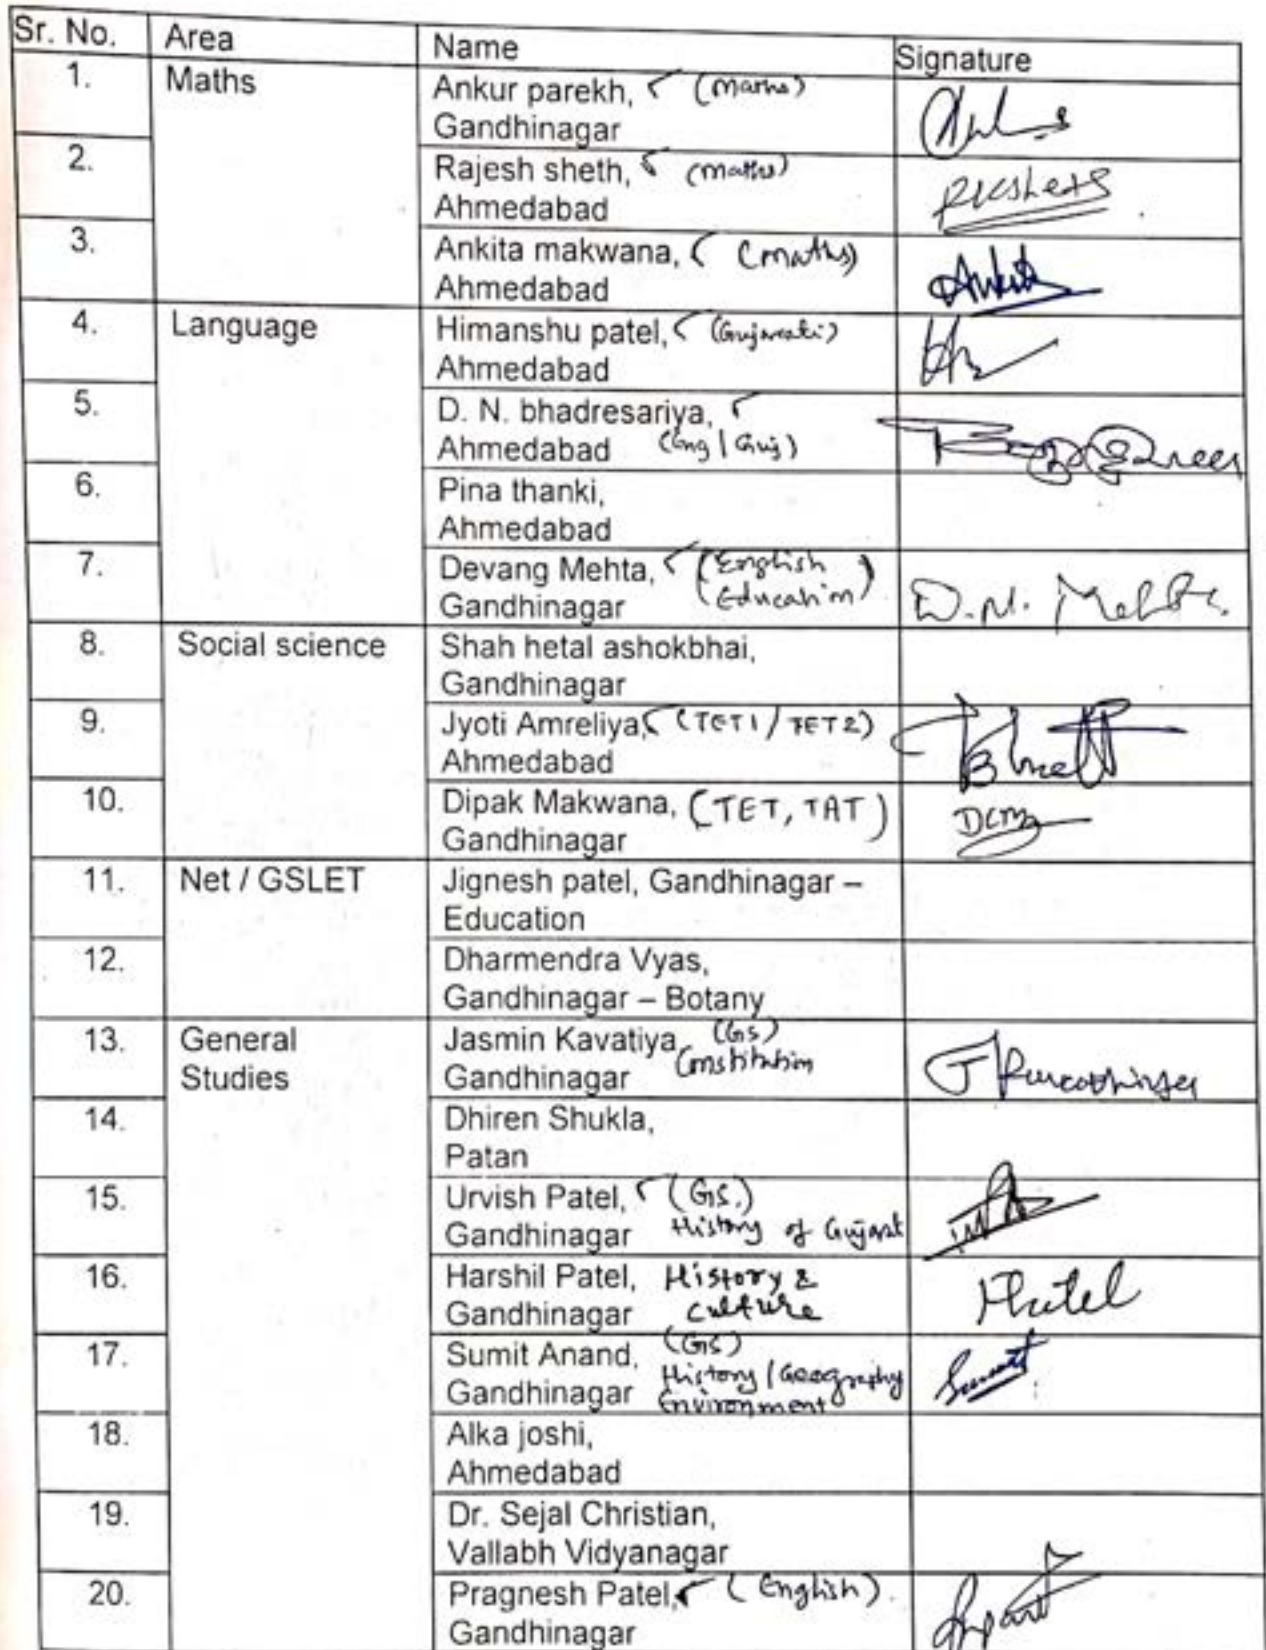 Sr. No. Area Name Signature
1. Maths Ankur parekh, (maths)
Gandhinagar
2. Rajesh sheth, (maths)
Ahmedabad
3. Ankita makwana, (maths)
Ahmedabad
4. Language Himanshu patel, (Gujarati)
Ahmedabad
5. D. N. bhadresariya,
Ahmedabad (Eng | Guj)
6. Pina thanki,
Ahmedabad
7. Devang Mehta, (English
Gandhinagar Education) D.N. Mehta
8. Social science Shah hetal ashokbhai,
Gandhinagar
9. Jyoti Amreliya, (TET1 / TET2)
Ahmedabad
10. Dipak Makwana, (TET, TAT)
Gandhinagar
11. Net / GSLET Jignesh patel, Gandhinagar –
Education
12. Dharmendra Vyas,
Gandhinagar – Botany
13. General Jasmin Kavatiya (GS)
Studies Gandhinagar Constitution
14. Dhiren Shukla,
Patan
15. Urvish Patel, (GS.)
Gandhinagar History of Gujarat
16. Harshil Patel, History & HPatel
Gandhinagar culture
17. Sumit Anand, (GS)
Gandhinagar History / Geography
Environment
18. Alka joshi,
Ahmedabad
19. Dr. Sejal Christian,
Vallabh Vidyanagar
20. Pragnesh Patel, (English).
Gandhinagar